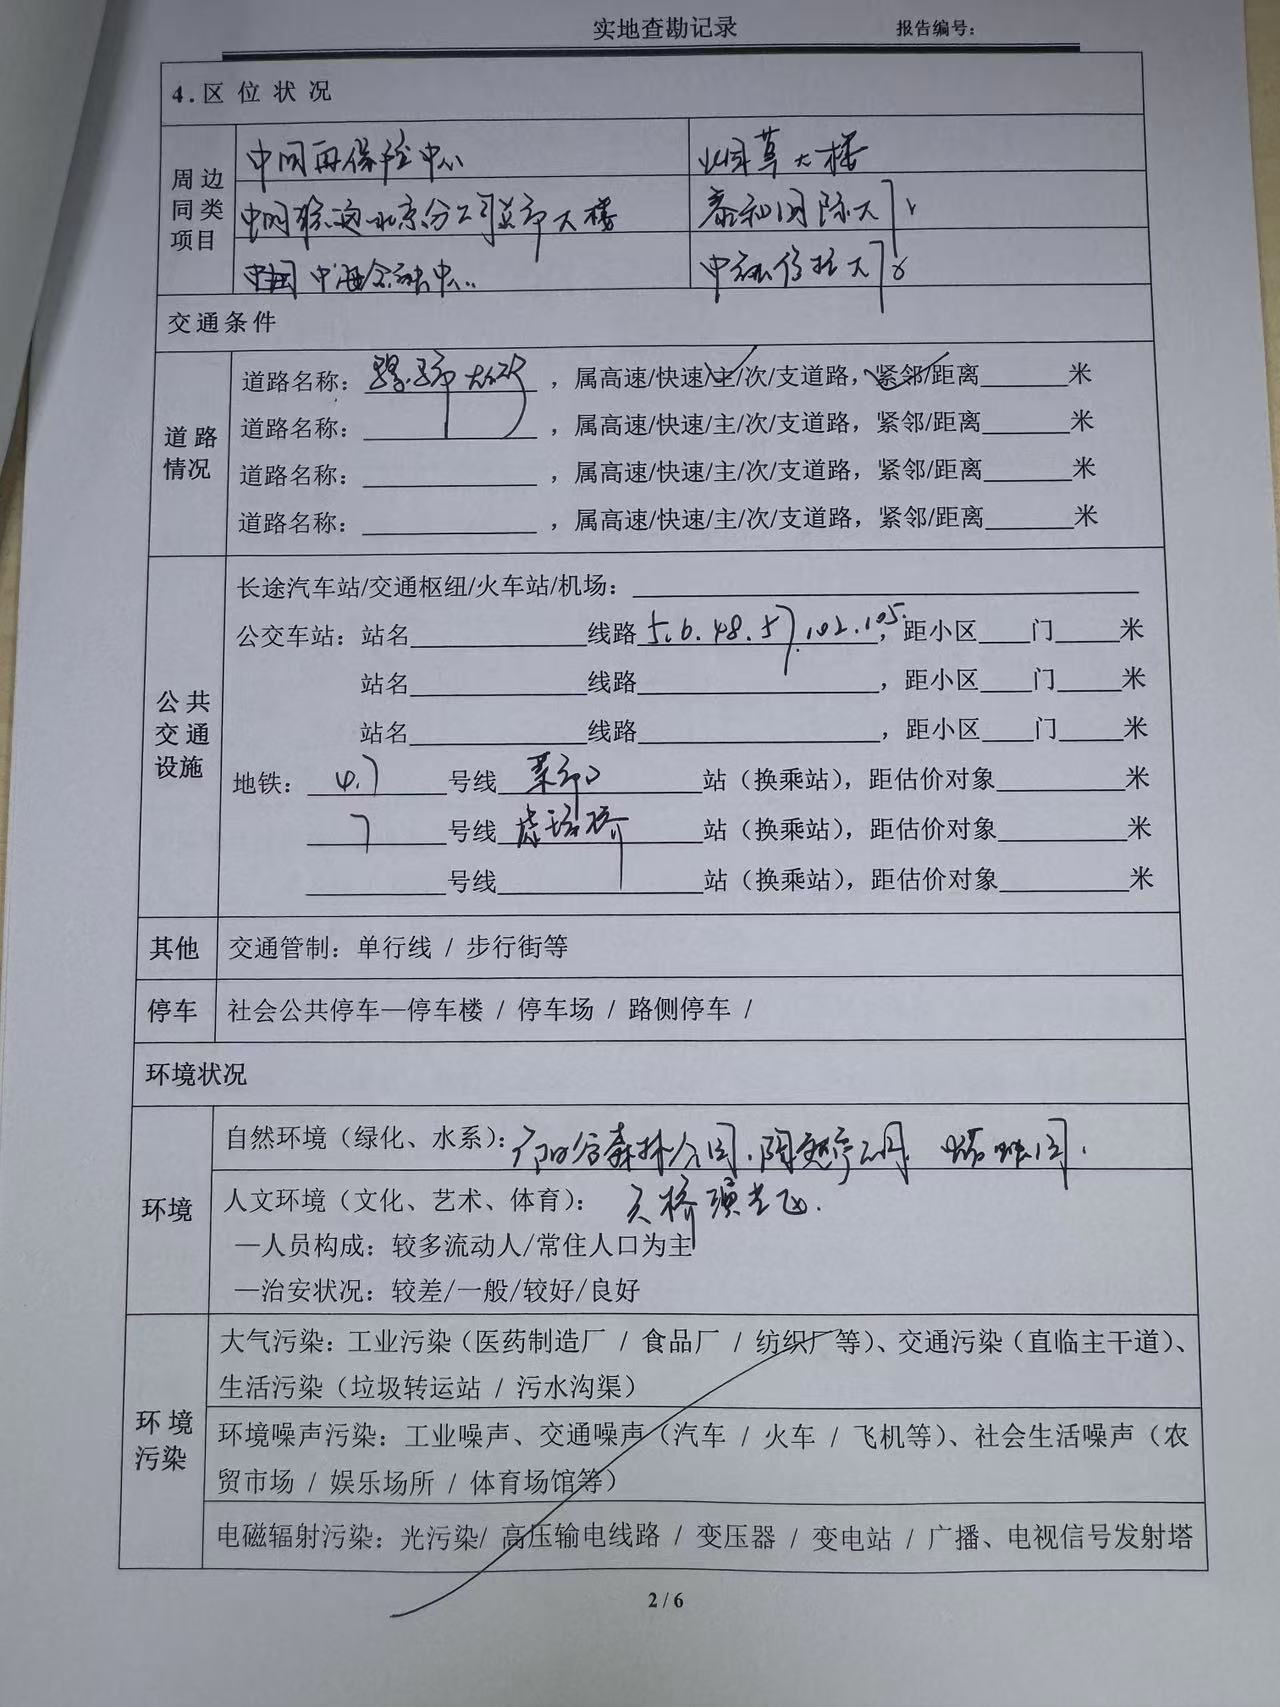 实地查勘记录 报告编号：
4.区位状况
周边同类项目
中国再保险中心 烟草大楼
中国联通北京分公司总部大楼 泰和国际大厦
中海金融中心 中融信托大厦
交通条件
道路情况
道路名称：骡马市大街，属高速/快速/主/次/支道路，紧邻/距离______米
道路名称：____________，属高速/快速/主/次/支道路，紧邻/距离______米
道路名称：____________，属高速/快速/主/次/支道路，紧邻/距离______米
道路名称：____________，属高速/快速/主/次/支道路，紧邻/距离______米
公共交通设施
长途汽车站/交通枢纽/火车站/机场：____________
公交车站：站名____________线路5.6.48.57.102.105.，距小区____门____米
站名____________线路____________，距小区____门____米
站名____________线路____________，距小区____门____米
地铁：4.7号线菜市口站（换乘站），距估价对象________米
7号线虎坊桥站（换乘站），距估价对象________米
________号线____________站（换乘站），距估价对象________米
其他 交通管制：单行线 / 步行街等
停车 社会公共停车—停车楼 / 停车场 / 路侧停车 /
环境状况
环境
自然环境（绿化、水系）：广阳谷森林公园.陶然亭公园.
人文环境（文化、艺术、体育）：天桥演艺区.
—人员构成：较多流动人/常住人口为主
—治安状况：较差/一般/较好/良好
环境污染
大气污染：工业污染（医药制造厂 / 食品厂 / 纺织厂等）、交通污染（直临主干道）、
生活污染（垃圾转运站 / 污水沟渠）
环境噪声污染：工业噪声、交通噪声（汽车 / 火车 / 飞机等）、社会生活噪声（农
贸市场 / 娱乐场所 / 体育场馆等）
电磁辐射污染：光污染/ 高压输电线路 / 变压器 / 变电站 / 广播、电视信号发射塔
2 / 6